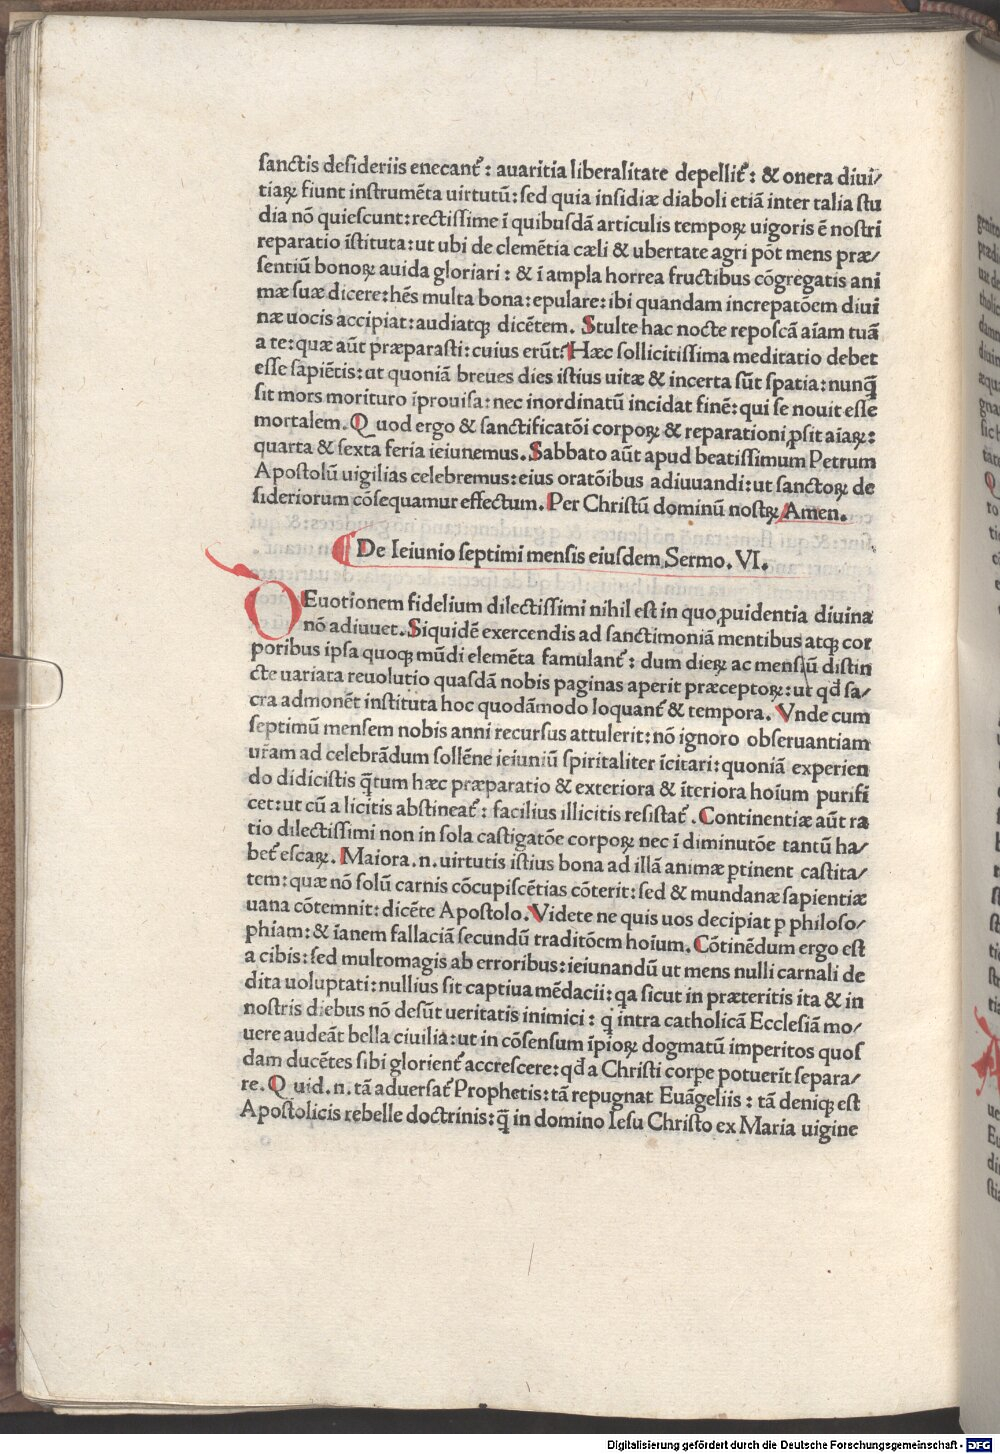 sanctis desideriis enecant᷑: auaritia liberalitate depellit᷑: & onera diui/
tiaꝝ fiunt instrumēta uirtutū: sed quia insidiæ diaboli etiā inter talia stu
dia nō quiescunt: rectissime ī quibusdā articulis tempoꝝ uigoris ē nostri
reparatio īstituta: ut ubi de clemētia cæli & ubertate agri pōt mens præ/
sentiū bonoꝝ auida gloriari: & ī ampla horrea fructibus cōgregatis ani
mæ suæ dicere: hēs multa bona: epulare: ibi quandam increpatōem diui
næ uocis accipiat: audiatqꝫ dicētem. Stulte hac nocte reposcā aīam tuā
a te: quæ aūt præparasti: cuius erūt: Hæc sollicitissima meditatio debet
esse sapiētis: ut quoniā breues dies istius uitæ & incerta sūt spatia: nunq̄
sit mors morituro īprouisa: nec inordinatū incidat finē: qui se nouit esse
mortalem. Quod ergo & sanctificatōi corpoꝝ & reparationi ꝓsit aīaꝝ:
quarta & sexta feria ieiunemus. Sabbato aūt apud beatissimum Petrum
Apostolū uigilias celebremus: eius oratōibus adiuuandi: ut sanctoꝝ de
sideriorum cōsequamur effectum. Per Christū dominū nostꝝ Amen.
De Ieiunio septimi mensis eiusdem Sermo. VI.
DEuotionem fidelium dilectissimi nihil est in quo ꝓuidentia diuina
nō adiuuet. Siquidē exercendis ad sanctimoniā mentibus atqꝫ cor
poribus ipsa quoqꝫ mūdi elemēta famulant᷑: dum dieꝝ ac mensiū distin
cte uariata reuolutio quasdā nobis paginas aperit præceptoꝝ: ut qd̄ sa/
cra admonēt instituta hoc quodāmodo loquant᷑ & tempora. Vnde cum
septimū mensem nobis anni recursus attulerit: nō ignoro obseruantiam
uīam ad celebrādum sollēne ieiuniū spiritaliter īcitari: quoniā experien
do didicistis q̄tum hæc præparatio & exteriora & īteriora hoīum purifi
cet: ut cū a licitis abstineat᷑: facilius illicitis resistat᷑. Continentiæ aūt ra
tio dilectissimi non in sola castigatōe corpoꝝ nec ī diminutōe tantū ha/
bet᷑ escaꝝ. Maiora .n. uirtutis istius bona ad illā animæ ꝑtinent castita/
tem: quæ nō solū carnis cōcupiscētias cōterit: sed & mundanæ sapientiæ
uana cōtemnit: dicēte Apostolo. Videte ne quis uos decipiat ꝑ philoso/
phiam: & īanem fallaciā secundū traditōem hoīum. Cōtinēdum ergo est
a cibis: sed multomagis ab erroribus: ieiunandū ut mens nulli carnali de
dita uoluptati: nullius sit captiua mēdacii: qa sicut in præteritis ita & in
nostris diebus nō desūt ueritatis inimici: q̄ intra catholicā Ecclesiā mo/
uere audeāt bella ciuilia: ut in cōsensum īpioꝝ dogmatū imperitos quos
dam ducētes sibi glorient᷑ accrescere: qd̄ a Christi corpe potuerīt separa/
re. Quid .n. tā aduersat᷑ Prophetis: tā repugnat Euāgeliis: tā deniqꝫ est
Apostolicis rebelle doctrinis: q̄ in domino Iesu Christo ex Maria uigine
Digitalisierung gefördert durch die Deutsche Forschungsgemeinschaft - DFG